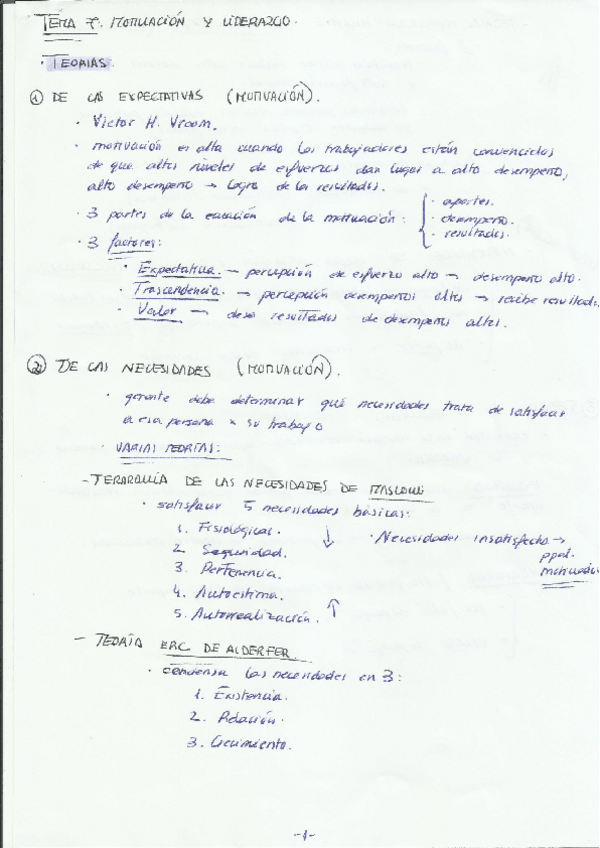 TEMA 7. MOTIVACIÓN Y LIDERAZGO.
· TEORIAS.
① DE LAS EXPECTATIVAS (MOTIVACIÓN).
· Victor H. Vroom.
· motivación es alta cuando los trabajadores están convencidos
de que altos niveles de esfuerzos dan lugar a alto desempeño,
alto desempeño → logro de los resultados.
· 3 partes de la ecuación de la motivación: { · aportes.
· desempeño.
· resultados.
· 3 factores:
· Expectativa → percepción de esfuerzo alto → desempeño alto.
· Trascendencia. → percepción desempeños altos → recibe resultados
· Valor → desea resultados de desempeños altos.
② DE LAS NECESIDADES (MOTIVACIÓN).
· gerente debe determinar qué necesidades trata de satisfacer
a esa persona x su trabajo
· VARIAS TEORIAS:
- JERARQUÍA DE LAS NECESIDADES DE MASLOW
· satisfacer 5 necesidades básicas:
1. Fisiológicas.
2. Seguridad. ↓ · Necesidades insatisfecha →
3. Pertenencia. ppal.
4. Autoestima. motivador
5. Autorrealización. ↑
- TEORÍA ERC DE ALDERFER.
· condensa las necesidades en 3:
1. Existencia.
2. Relación.
3. Crecimiento.
-1-